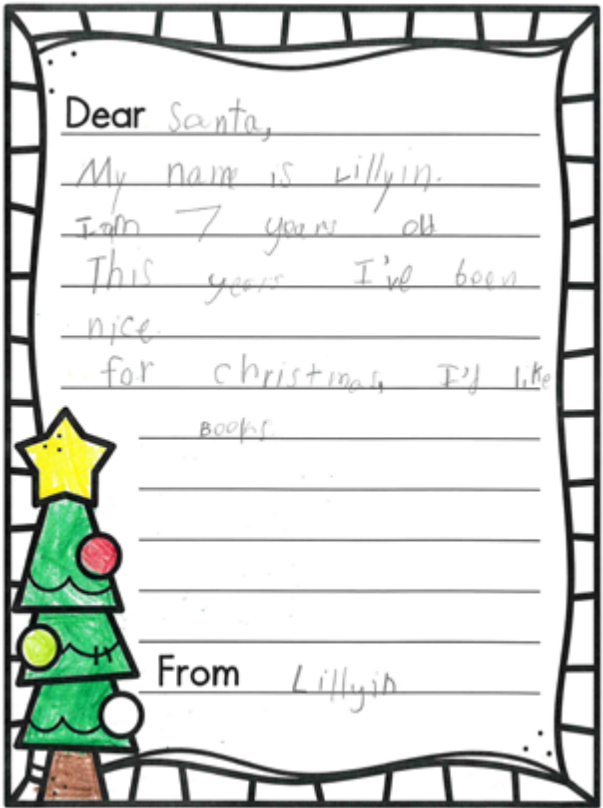 Dear Santa,
My name is Lillyin.
I am 7 years old
This years I've been
nice.
for christmas, I'd like
Books.
From Lillyin